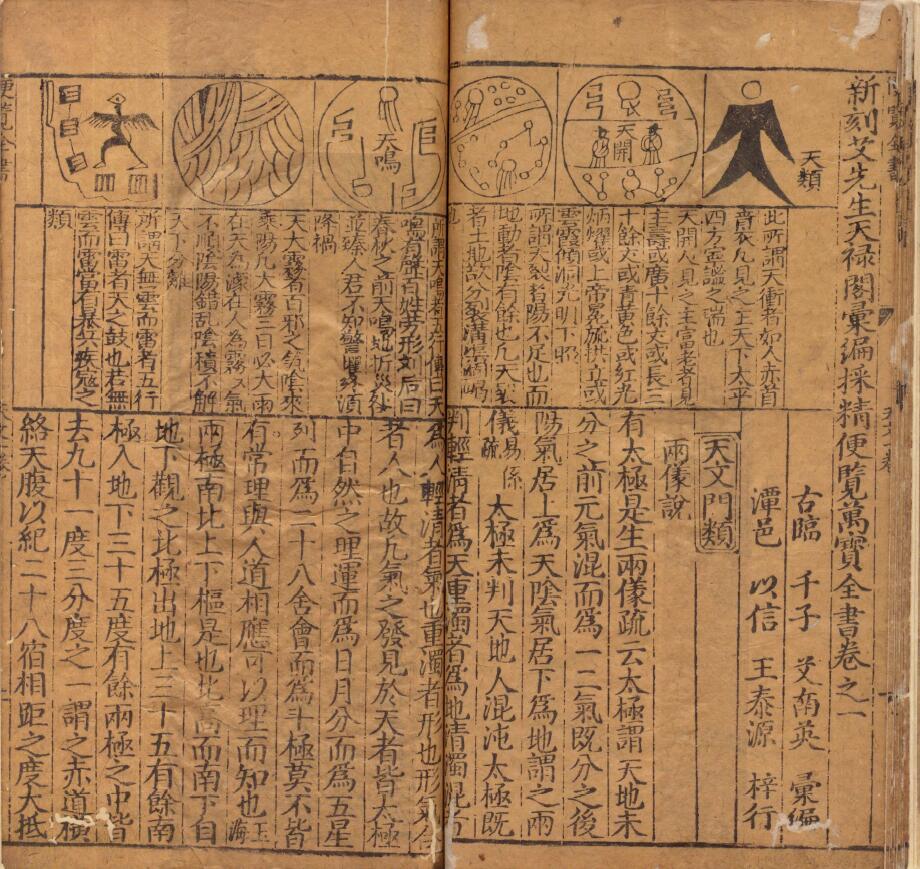 新刻艾先生天禄閣彙編採精便覧萬寳全書卷之一
古臨 千子 艾南英 彙編
潭邑 以信 王泰源 梓行
天文門類
兩儀說
有太極是生兩儀疏云太極謂天地未
分之前元氣混而爲一二氣既分之後
陽氣居上爲天陰氣居下爲地謂之兩
儀易係疏 太極未判天地人混沌太極既
判輕清者爲天重濁者爲地清濁混者
爲人輕清者氣也重濁者形也形氣合
者人也故凢氣之發見於天者皆太極
中自然之理運而爲日月分而爲五星
列而爲二十八舍會而爲斗極莫不皆
有常理與人道相應可以理而知也王海
兩極南北上下樞是也北高而南下自
地下觀之北極出地上三十五有餘南
極入地下三十五度有餘兩極之中皆
去九十一度三分度之一謂之赤道横
絡天腹以紀二十八宿相距之度大抵
天類
此所謂天衝者如人赤首
青衣凢見之主天下太平
四方寧謐之瑞也
天開
天開人見之主富者者見
主壽或廣十餘丈或長二
十餘丈或青黄色或紅光
炳燿或上帝冕旒拱立或
雲霞傾洞光明下照
所謂天裂者陽不足也而
地動者陰有餘也凢天裂
者土地故分裂
天鳴
所謂天鳴者五行傳曰天
鳴有聲百姓勞形刘后曰
春秋之前天鳴地坼災処
並臻人君不知警懼湏
降禍
天大霧者百邪之氣陰來
乘陽凢大霧三日必大雨
在天爲濛在人爲霧々氣
不順陰陽錯乱陰積不解
天下分離
所謂天無雲而雷者五行
傳曰雷者天之鼓也若無
雲而雷當有暴兵疾寇之
類